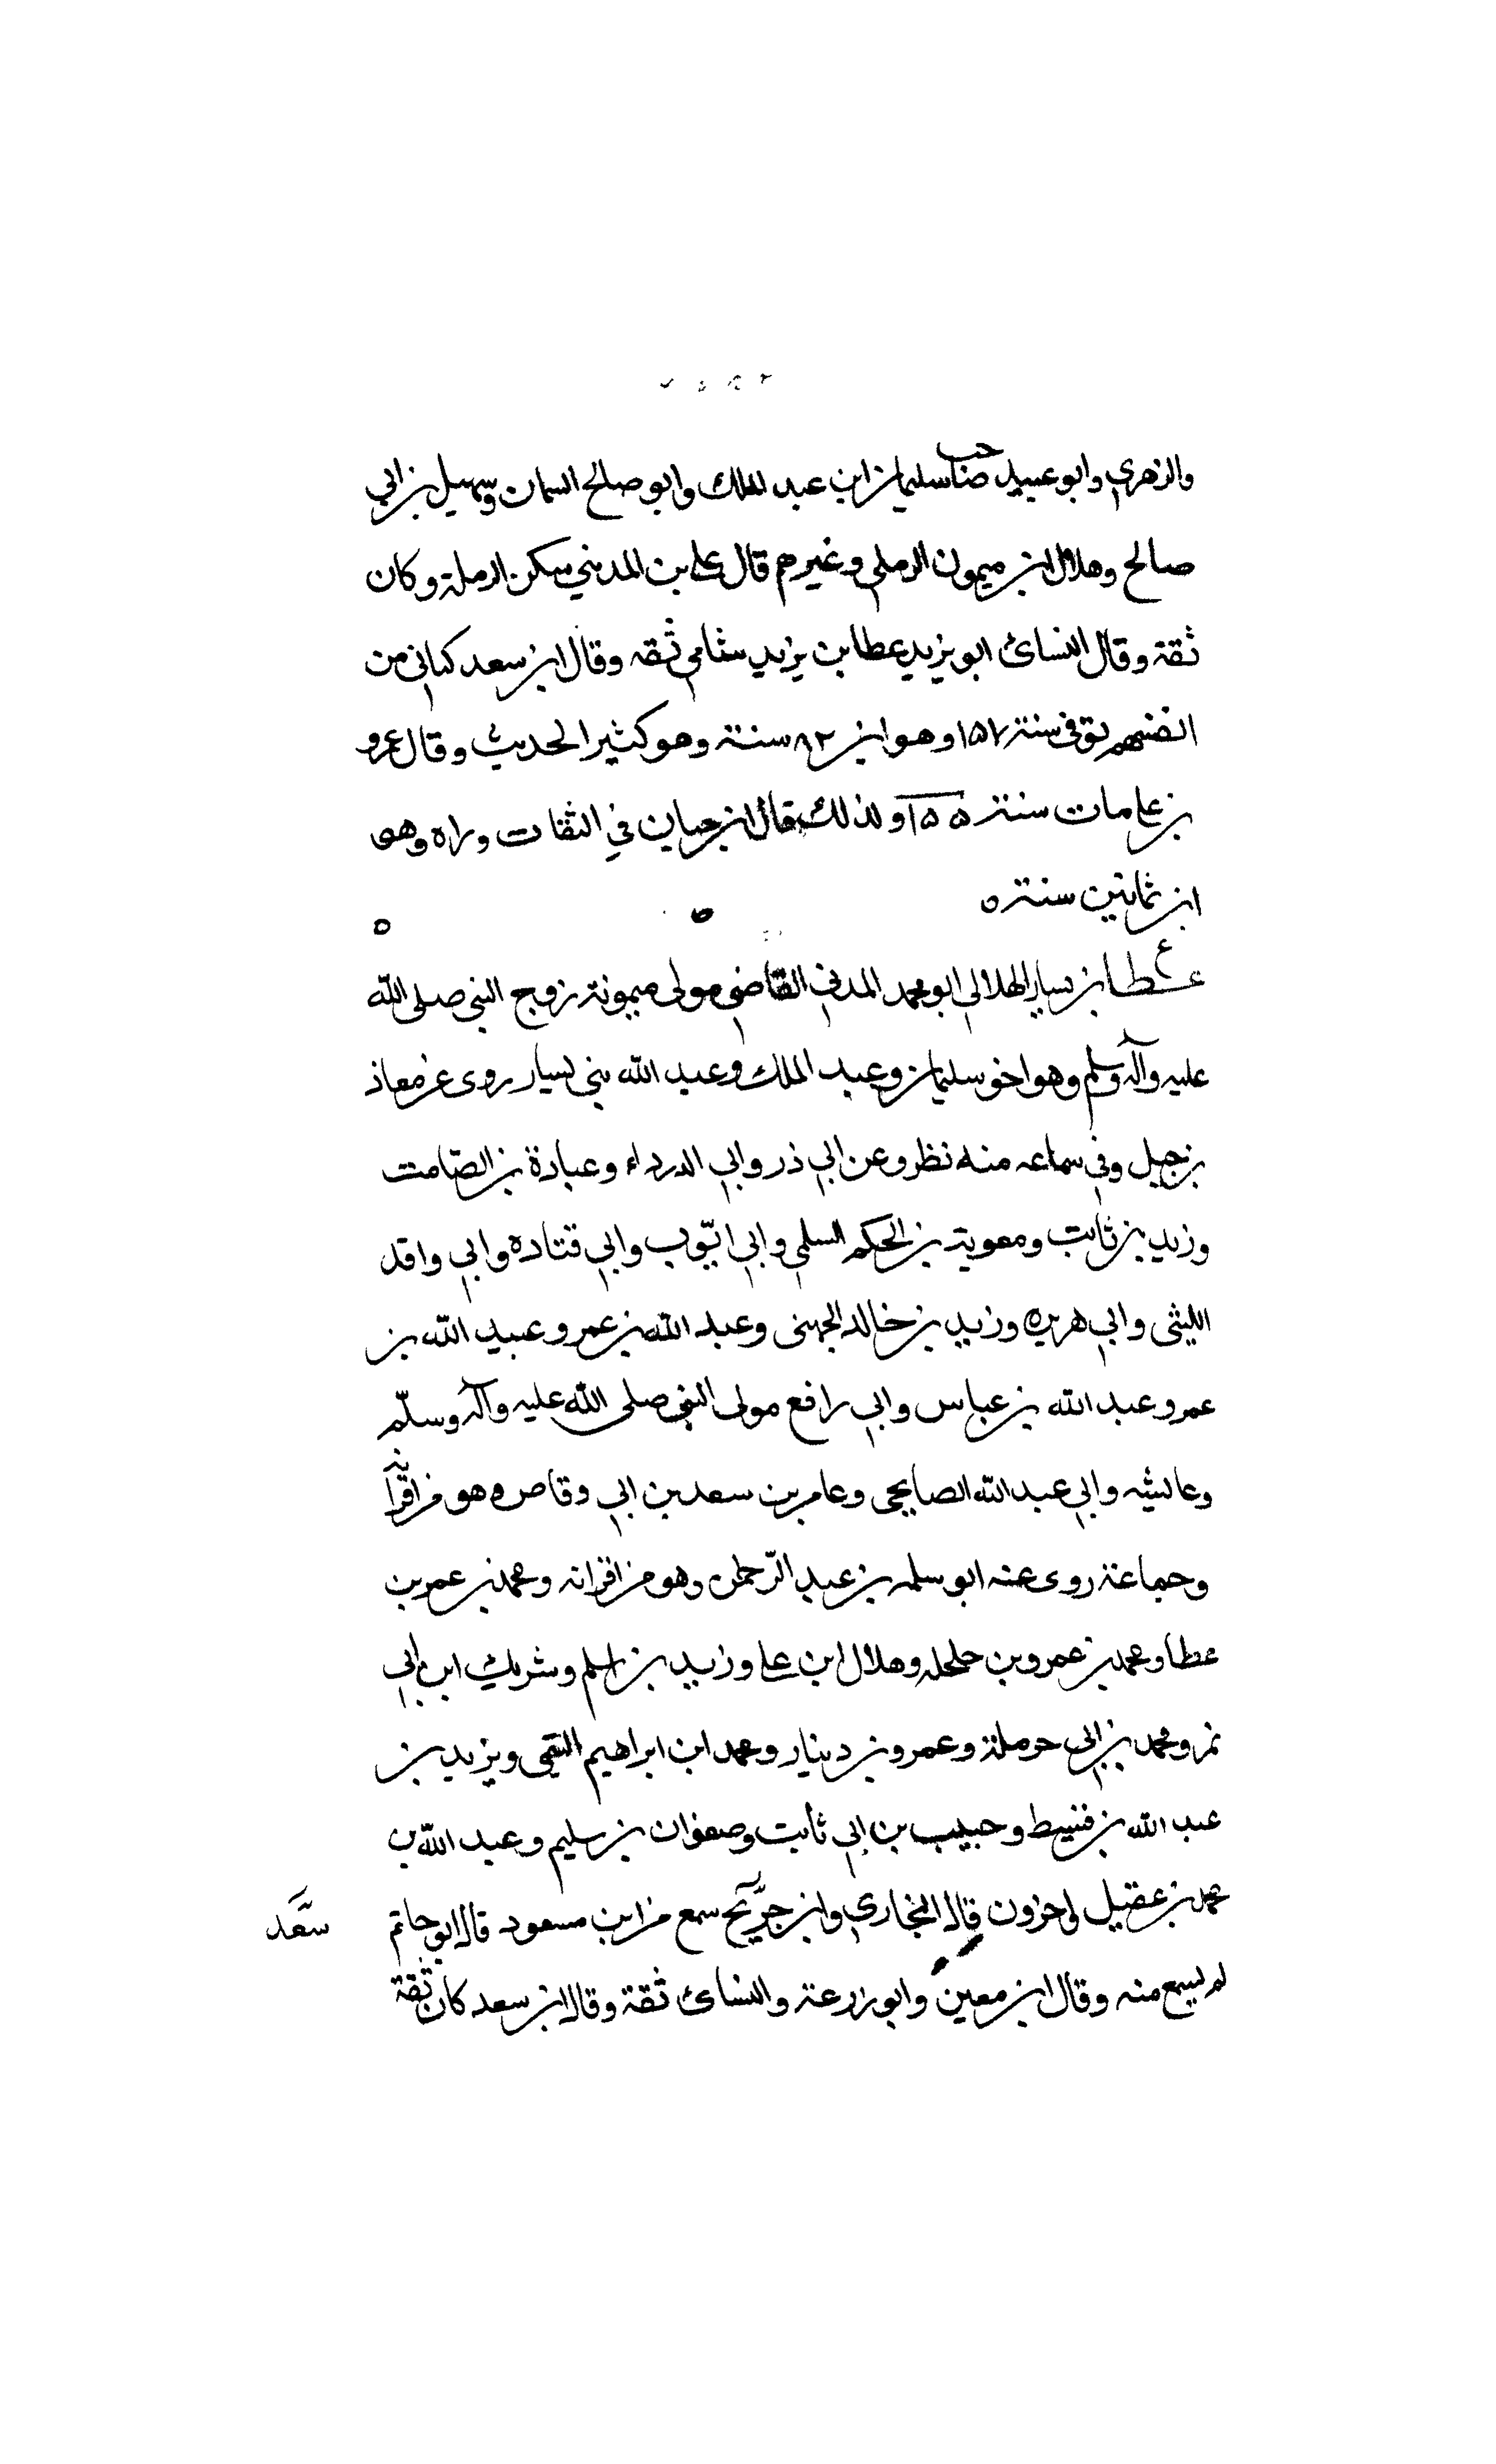 والزهري وابو عبيد صاحب سليمان ابن عبد الملك وابو صالح السمان وسهيل بن ابي
صالح وهلال بن ميمون الرملي وغيرهم قال علي بن المديني سكن الرملة وكان
ثقة وقال النسائ ابو يزيد عطا بن يزيد شامي ثقه وقال ابن سعد كناني من
انفسهم توفى سنة ١٥٧ وهو ابن ٨٢ سنة وهو كثير الحديث وقال عمرو
بن علي مات سنة ١٥٥ ولذلك قال ابن حبان في الثقات وزاه وهو
ابن ثمانين سنة ٥
ع عطا بن يسار الهلالي ابو محمد المدني القاضي مولى ميمونة زوج النبي صلى الله
عليه وآله وسلم وهو اخو سليمان وعبد الملك وعبد الله بني يسار روى عن معاذ
بن جبل وفي سماعه منه نظر وعن ابي ذر وابي الدرداء وعبادة بن الصامت
وزيد بن ثابت ومعوية بن الحكم السلمي وابي ايوب وابي قتاده وابي واقد
الليثى وابي هريره وزيد بن خالد الجهنى وعبد الله بن عمر وعبيد الله بن
عمر وعبد الله بن عباس وابي رافع مولى النبي صلى الله عليه وآله وسلم
وعائشه وابي عبد الله الصنابحى وعامر بن سعد بن ابي وقاص وهو من اقرانه
وجماعة روى عنه ابو سلمه بن عبد الرحمن وهو من اقرانه ومحمد بن عمر بن
عطا ومحمد بن عمرو بن حلحله وهلال ابن علي وزيد بن اسلم وشريك ابن ابي
نمر ومحمد بن ابي حرملة وعمرو بن دينار ومحمد ابن ابراهيم التيمى ويزيد بن
عبد الله بن قسيط وحبيب بن ابي ثابت وصفوان بن سليم وعبد الله بن
محمد بن عقيل واخرون قال البخاري وابن جريج سمع من ابن مسعود قال ابو حاتم
سعد
لم يسمع منه وقال ابن معين وابو زرعة والنسائ ثقة وقال ابن سعد كان ثقة